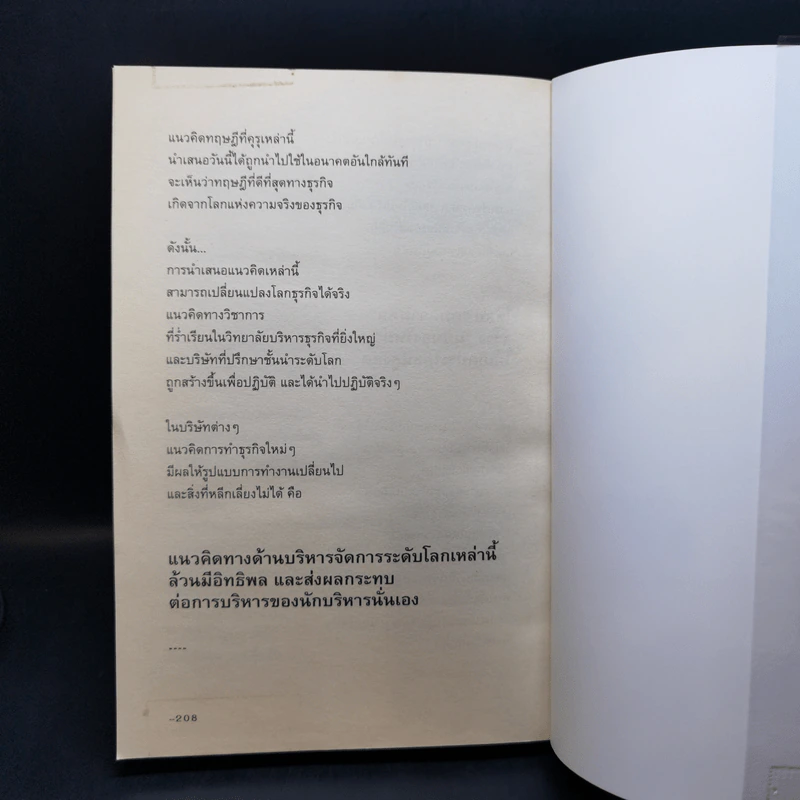 แนวคิดทฤษฎีที่คุรุเหล่านี้
นำเสนอวันนี้ได้ถูกนำไปใช้ในอนาคตอันใกล้ทันที
จะเห็นว่าทฤษฎีที่ดีที่สุดทางธุรกิจ
เกิดจากโลกแห่งความจริงของธุรกิจ
ดังนั้น...
การนำเสนอแนวคิดเหล่านี้
สามารถเปลี่ยนแปลงโลกธุรกิจได้จริง
แนวคิดทางวิชาการ
ที่ร่ำเรียนในวิทยาลัยบริหารธุรกิจที่ยิ่งใหญ่
และบริษัทที่ปรึกษาชั้นนำระดับโลก
ถูกสร้างขึ้นเพื่อปฏิบัติ และได้นำไปปฏิบัติจริงๆ
ในบริษัทต่างๆ
แนวคิดการทำธุรกิจใหม่ๆ
มีผลให้รูปแบบการทำงานเปลี่ยนไป
และสิ่งที่หลีกเลี่ยงไม่ได้ คือ
แนวคิดทางด้านบริหารจัดการระดับโลกเหล่านี้
ล้วนมีอิทธิพล และส่งผลกระทบ
ต่อการบริหารของนักบริหารนั่นเอง
....
–208